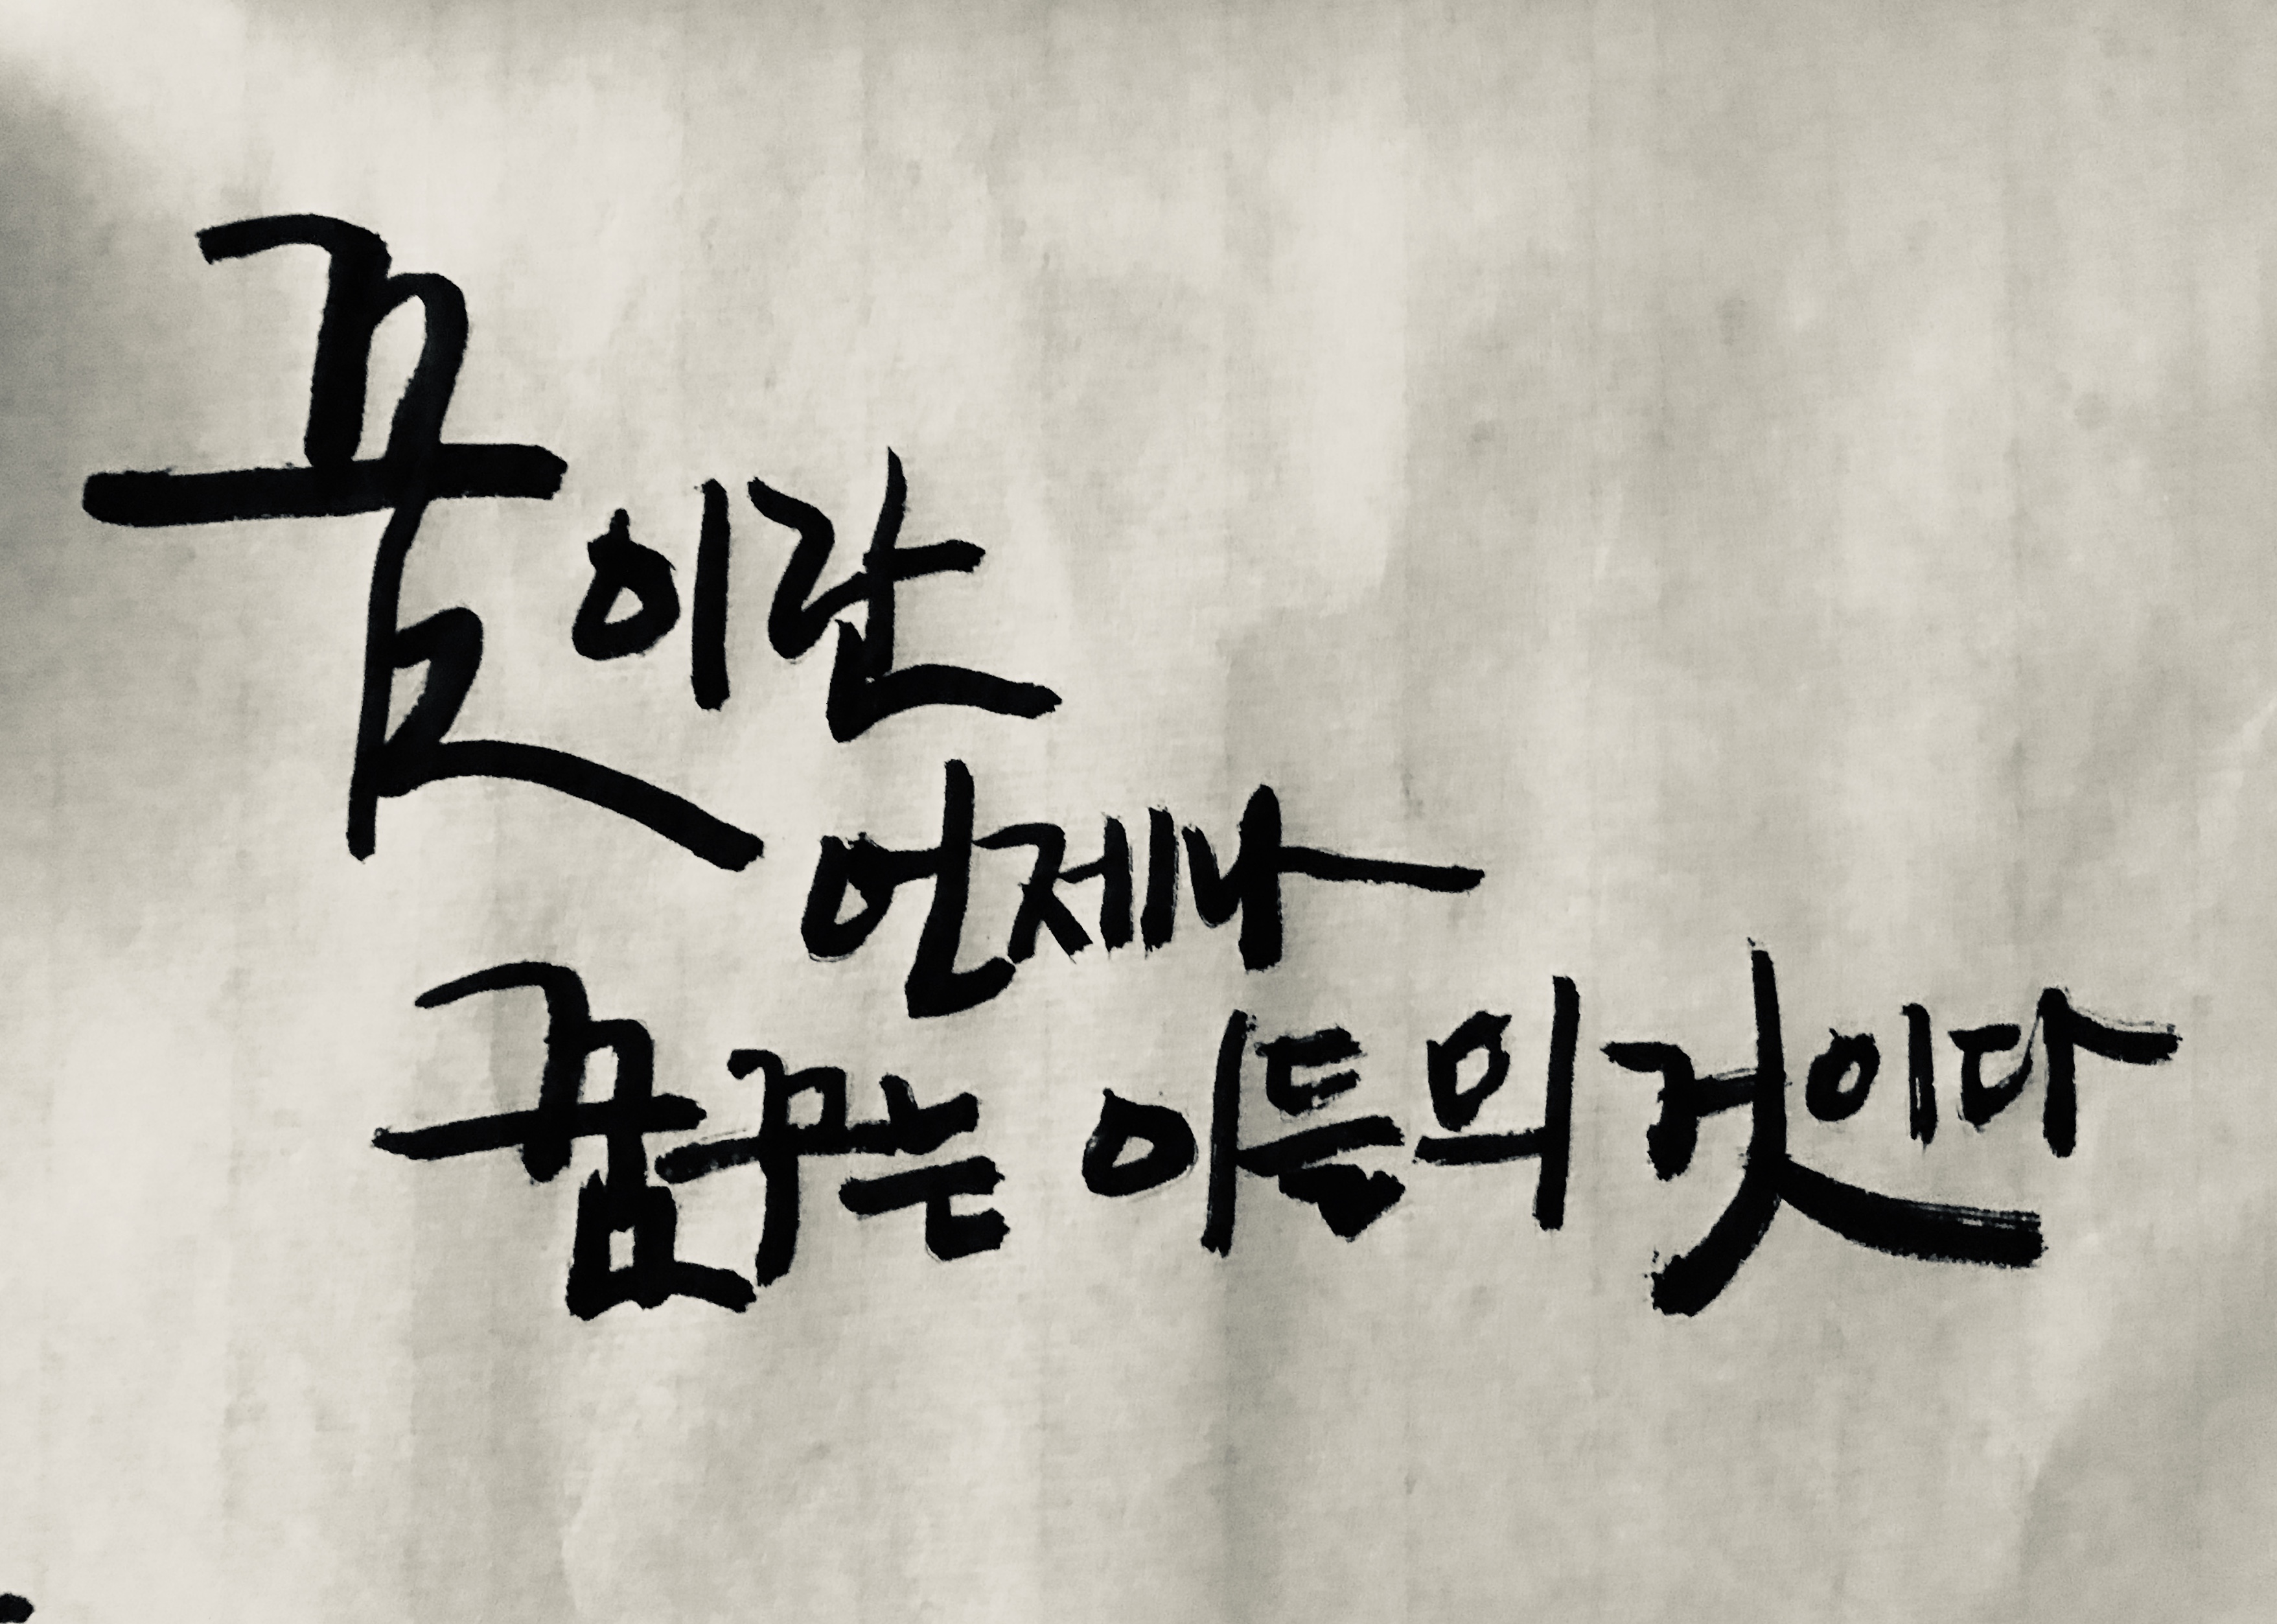 꿈이란
언제나
꿈꾸는 이들의 것이다